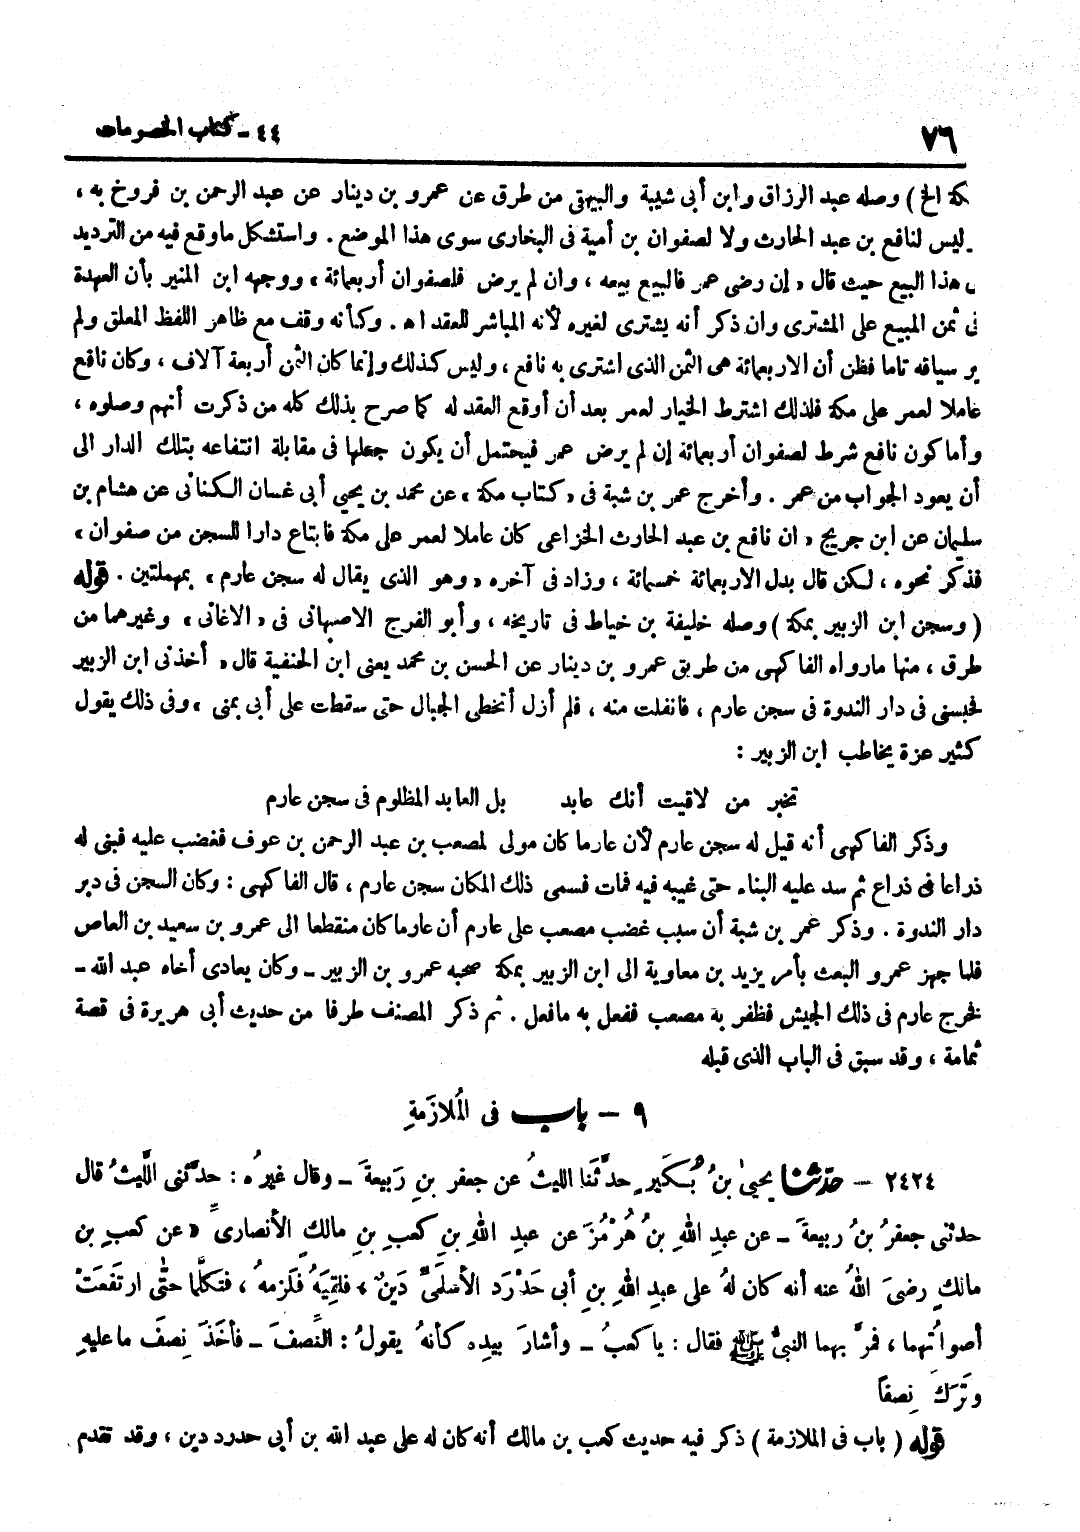 ٧٦
٤٤ ـ كتاب الخصومات
مكة الخ ) وصله عبد الرزاق وابن أبى شيبة والبيهقى من طرق عن عمرو بن دينار عن عبد الرحمن بن فروخ به ،
وليس لنافع بن عبد الحارث ولا لصفوان بن أمية فى البخارى سوى هذا الموضع . واستشكل ماوقع فيه من الترديد
فى هذا البيع حيث قال « إن رضى عمر فالبيع بيعه ، وان لم يرض فلصفوان أربعمائة » ووجهه ابن المنير بأن العهدة
فى ثمن المبيع على المشترى وان ذكر أنه يشترى لغيره لأنه المباشر للعقد اه . وكأنه وقف مع ظاهر اللفظ المعلق ولم
ير سياقه تاما فظن أن الاربعمائة هى الثمن الذى اشترى به نافع ، وليس كذلك وإنما كان الثمن أربعة آلاف ، وكان نافع
عاملا لعمر على مكة فلذلك اشترط الخيار لعمر بعد أن أوقع العقد له كما صرح بذلك كله من ذكرت أنهم وصلوه ،
وأما كون نافع شرط لصفوان أربعمائة إن لم يرض عمر فيحتمل أن يكون جعلها فى مقابلة انتفاعه بتلك الدار الى
أن يعود الجواب من عمر . وأخرج عمر بن شبة فى « كتاب مكة » عن محمد بن يحيى أبى غسان الكنانى عن هشام بن
سليمان عن ابن جريج « ان نافع بن عبد الحارث الخزاعى كان عاملا لعمر على مكة فابتاع دارا للسجن من صفوان »
فذكر نحوه ، لكن قال بدل الاربعمائة خمسمائة ، وزاد فى آخره « وهو الذى يقال له سجن عارم » بمهملتين . قوله
( وسجن ابن الزبير بمكة ) وصله خليفة بن خياط فى تاريخه ، وأبو الفرج الاصبهانى فى « الاغانى » وغيرهما من
طرق ، منها مارواه الفاكهى من طريق عمرو بن دينار عن الحسن بن محمد يعنى ابن الحنفية قال « أخذنى ابن الزبير
فحبسنى فى دار الندوة فى سجن عارم ، فانفلت منه ، فلم أزل أتخطى الجبال حتى سقطت على أبى بمنى » وفى ذلك يقول
كثير عزة يخاطب ابن الزبير :
تخبر من لاقيت أنك عابد بل العابد المظلوم فى سجن عارم
وذكر الفاكهى أنه قيل له سجن عارم لأن عارما كان مولى لمصعب بن عبد الرحمن بن عوف فغضب عليه فبنى له
ذراعا فى ذراع ثم سد عليه البناء حتى غيبه فيه فمات فسمى ذلك المكان سجن عارم ، قال الفاكهى : وكان السجن فى دبر
دار الندوة . وذكر عمر بن شبة أن سبب غضب مصعب على عارم أن عارما كان منقطعا الى عمرو بن سعيد بن العاص
فلما جهز عمرو البعث بأمر يزيد بن معاوية الى ابن الزبير بمكة صحبه عمرو بن الزبير ـ وكان يعادى أخاه عبد الله ـ
فخرج عارم فى ذلك الجيش فظفر به مصعب ففعل به مافعل . ثم ذكر المصنف طرفا من حديث أبى هريرة فى قصة
ثمامة ، وقد سبق فى الباب الذى قبله
٩ ـ باب فى المُلازَمةِ
٢٤٢٤ ـ حدثنا يحيىٰ بنُ بُكَيرٍ حدَّثَنا الليثُ عن جعفر بنِ رَبيعةَ ـ وقال غيرُه : حدَّثنى اللَّيثُ قال
حدثنى جعفرُ بنُ ربيعةَ ـ عن عبدِ اللهِ بنُ هُرْمُزَ عن عبدِ اللهِ بنِ كعبِ بنِ مالكٍ الأنصارىِّ « عن كعبِ بن
مالكٍ رضىَ اللهُ عنه أنه كان لهُ على عبدِ اللهِ بنِ أبى حَدْرَد الأسْلَمىِّ دَينٌ ، فلقِيَهُ فلَزِمهُ ، فتكلَّما حتَّى ارتَفَعَتْ
أصواتُهما ، فمرَّ بهما النبىُّ ﷺ فقال : يا كعبُ ـ وأشارَ بيدِه كأنهُ يقولُ : النِّصفَ ـ فأخَذَ نِصفَ ما عليهِ
وتَرَكَ نِصفاً
قوله ( باب فى الملازمة ) ذكر فيه حديث كعب بن مالك أنه كان له على عبد الله بن أبى حدرد دين ، وقد تقدم